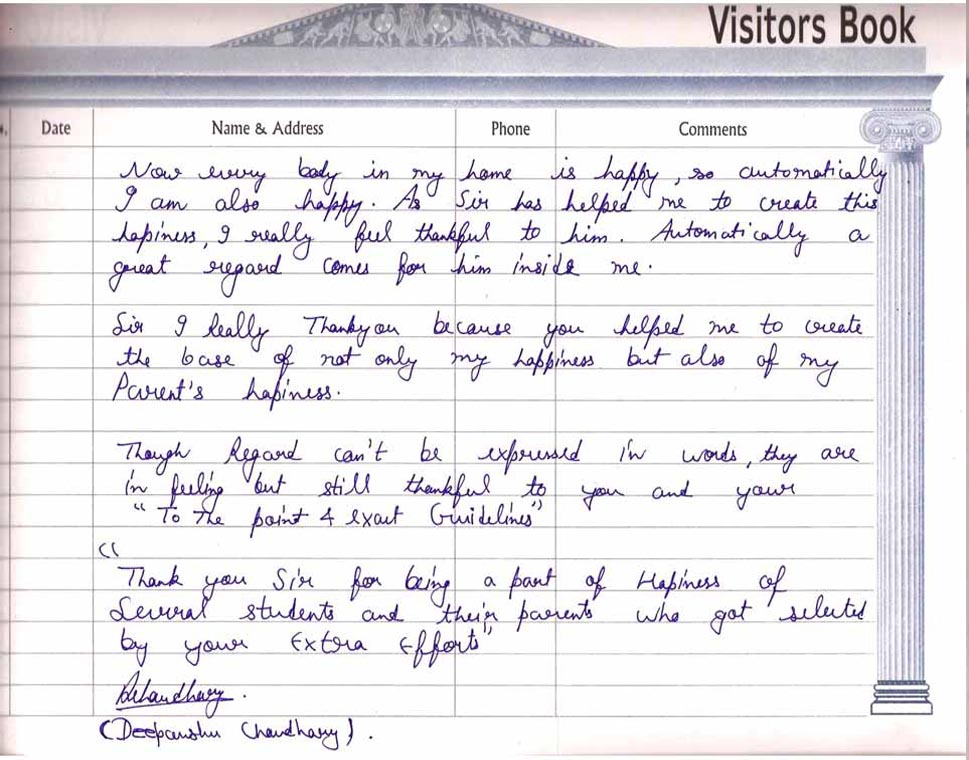 Visitors Book
Date Name & Address Phone Comments
Now every body in my home is happy, so automatically
I am also happy. As Sir has helped me to create this
hapiness, I really feel thankful to him. Automatically a
great regard comes for him inside me.
Sir I Really Thankyou because you helped me to create
the base of not only my happiness but also of my
Parent's hapiness.
Though Regard can't be expressed in words, they are
in feeling but still thankful to you and your
"To The point & exact Guidelines"
"
Thank you Sir for being a part of Hapiness of
Several students and their parents who got selected
by your Extra Efforts"
(Deepanshu Chaudhary).